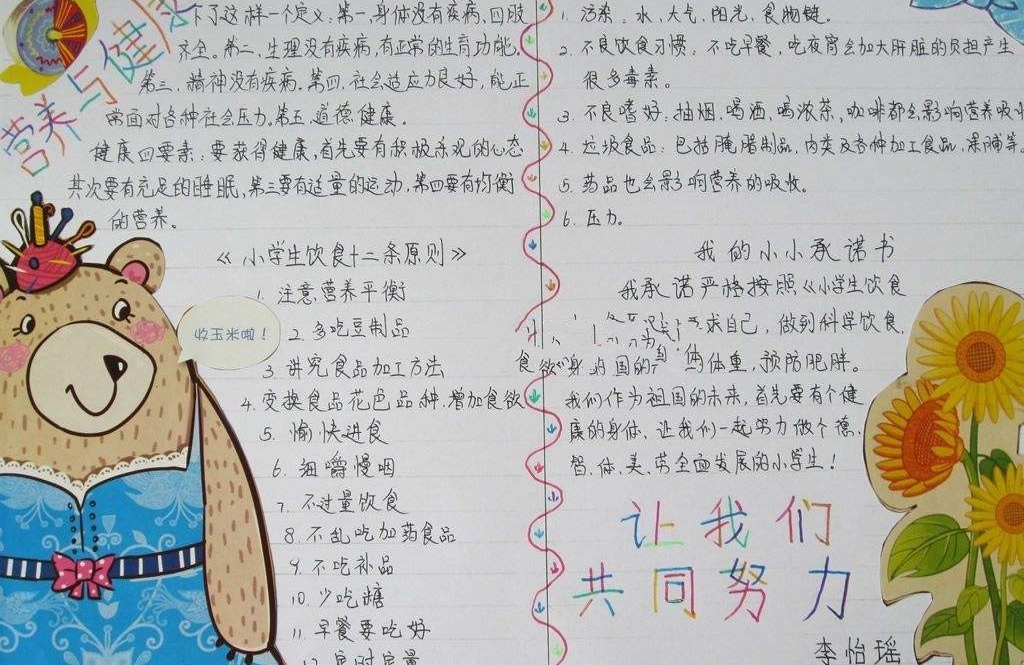 营养与健康
下了这样一个定义:第一,身体没有疾病,四肢
齐全。第二、生理没有疾病,有正常的生育功能,
第三、精神没有疾病.第四,社会适应力良好,能正
常面对各种社会压力.第五、道德健康。
健康四要素:要获得健康,首先要有积极乐观的心态
其次要有充足的睡眠,第三要有适量的运动,第四要有均衡
的营养。
《小学生饮食十二条原则》
1. 注意营养平衡
2. 多吃豆制品
3. 讲究食品加工方法
4. 变换食品花色品种.增加食欲
5. 愉快进食
6. 细嚼慢咽
7. 不过量饮食
8. 不乱吃加药食品
9. 不吃补品
10. 少吃糖
11. 早餐要吃好
12. 定时定量
收玉米啦!
1. 污染:水、大气、阳光、食物链。
2. 不良饮食习惯:不吃早餐,吃夜宵会加大肝脏的负担产生
很多毒素。
3. 不良嗜好:抽烟、喝酒、喝浓茶、咖啡都会影响营养吸收
4. 垃圾食品:包括腌腊制品,肉类及各种加工食品,果脯等。
5. 药品也会影响营养的吸收。
6. 压力。
我的小小承诺书
我承诺严格按照《小学生饮食
求自己,做到科学饮食,
体重,预防肥胖。
我们作为祖国的未来,首先要有个健
康的身体,让我们一起努力做个德、
智、体、美、劳全面发展的小学生!
让我们
共同努力
李怡瑶